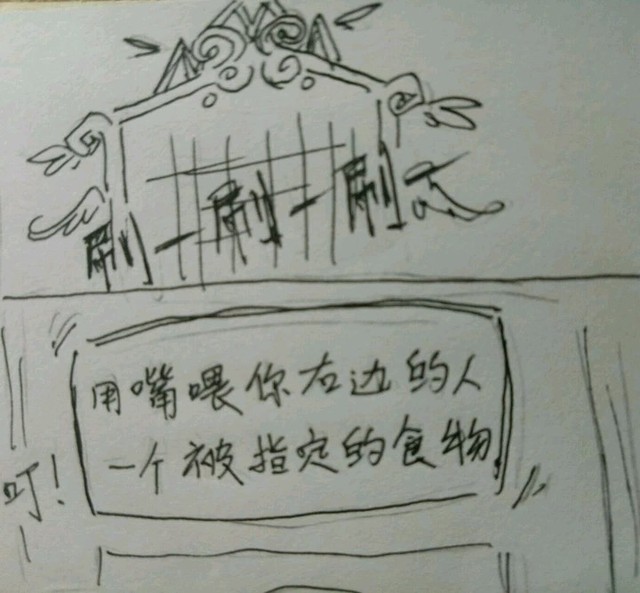 刷一刷一刷
用嘴喂你右边的人
一个被指定的食物
叮!